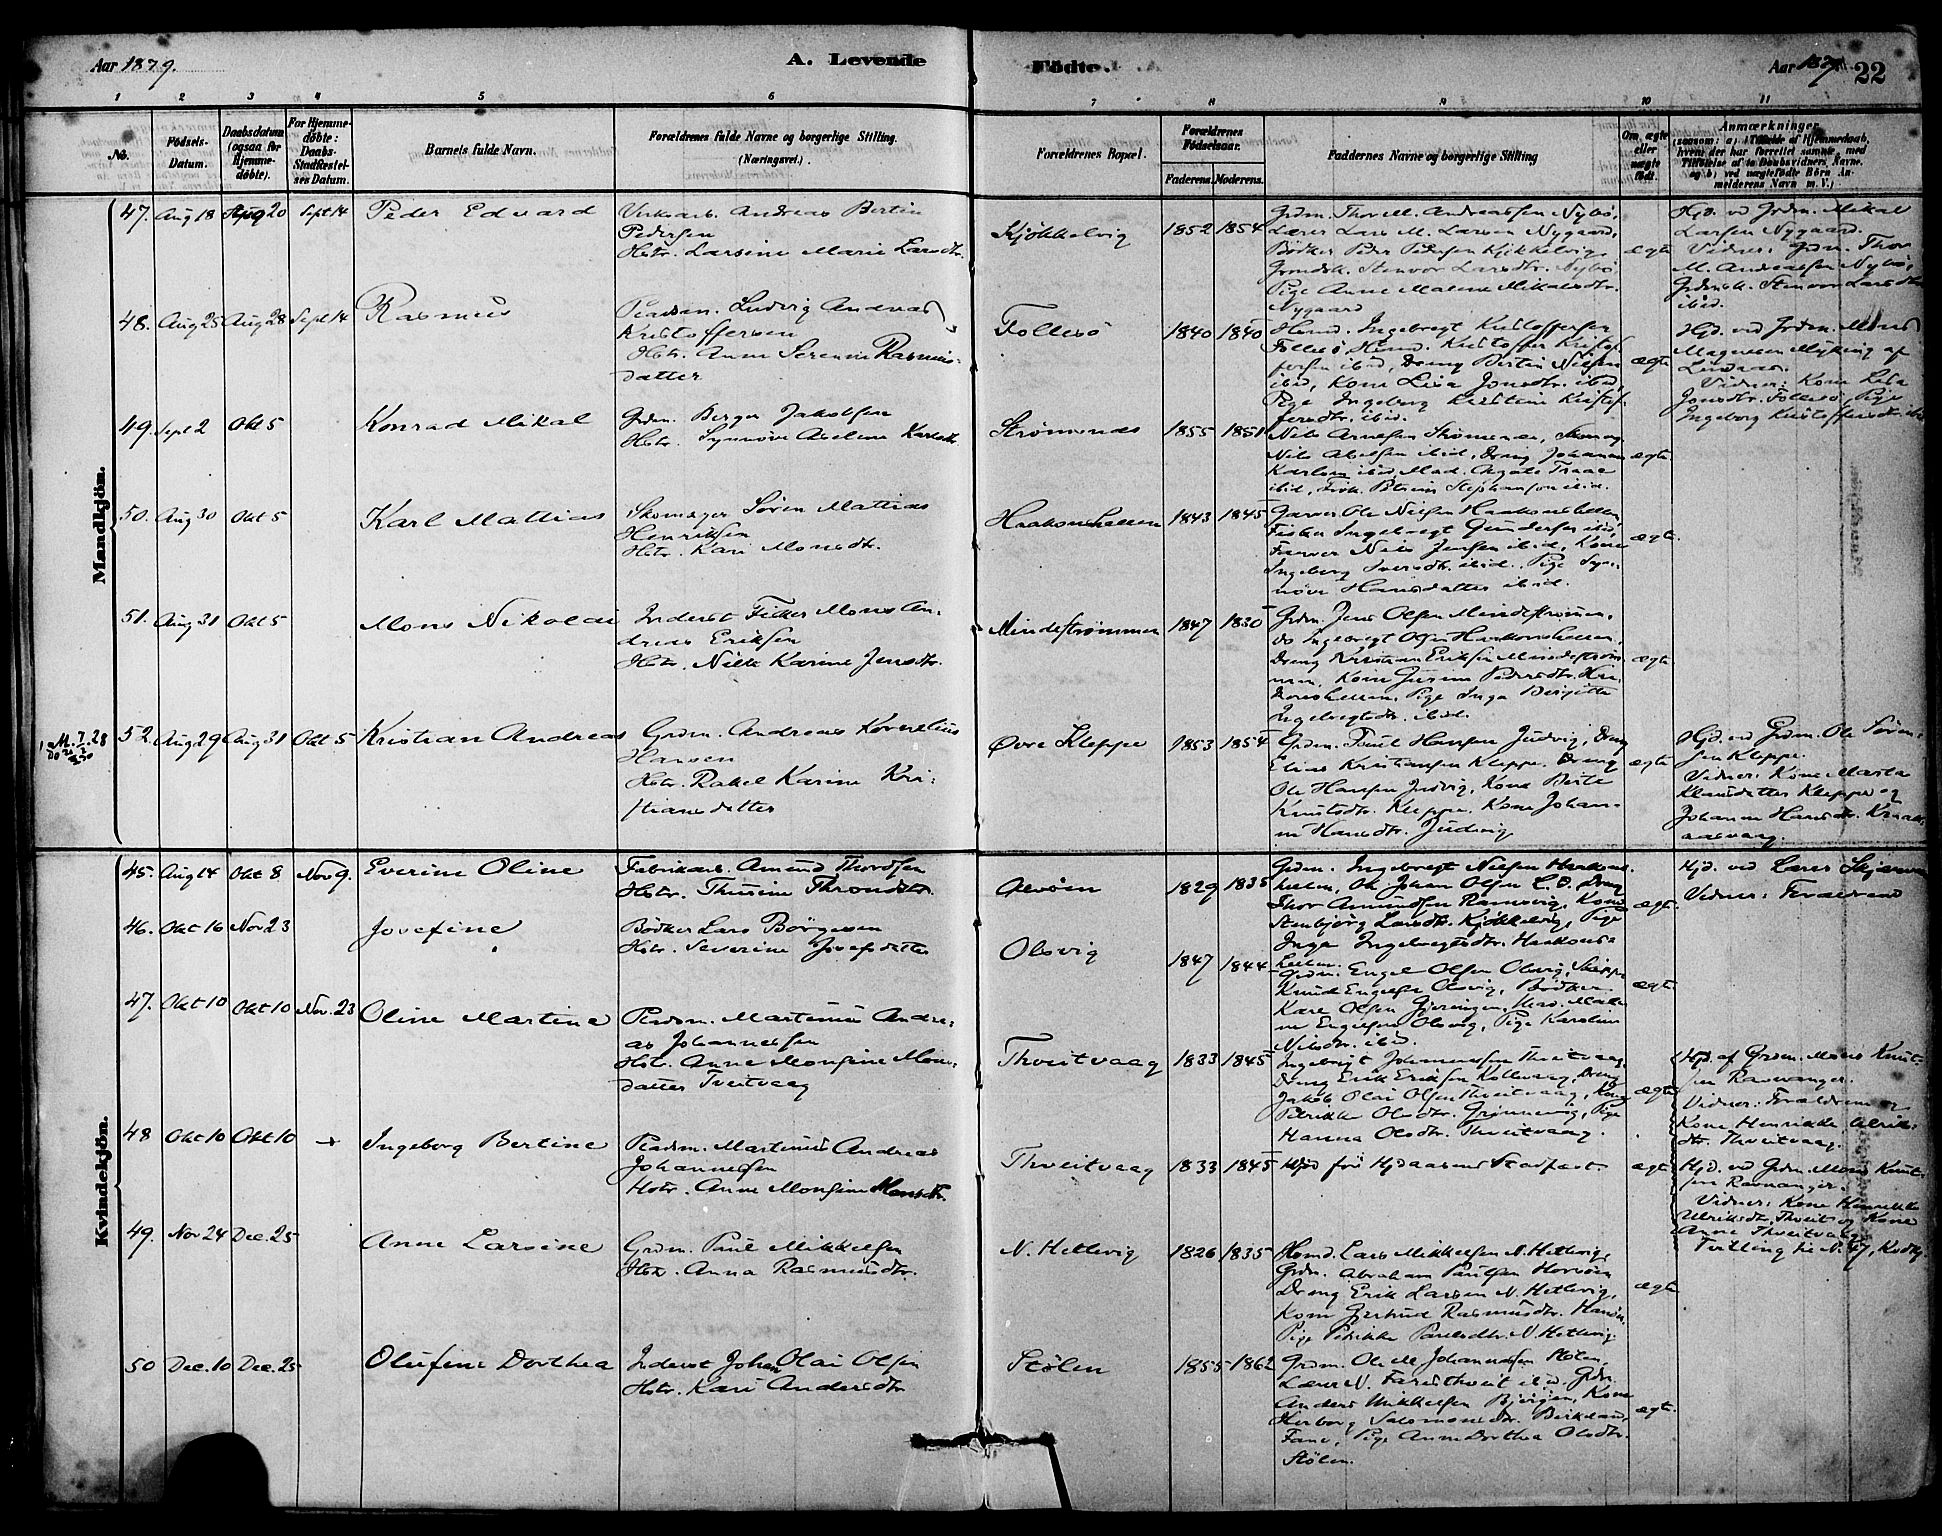 Aar 1879.
A. Levende
Födte.
Aar 1879
22
1 2 3 4 5 6
7 8 9 10 11
No.
Födsels-
Datum.
Daabsdatum
(ogsaa for
Hjemme-
döbte).
For Hjemme-
döbte:
Daabs-
Stadfæstel-
ses Datum.
Barnets fulde Navn.
Forældrenes fulde Navne og borgerlige Stilling.
(Næringsvei).
Forældrenes Bopæl.
Forældrenes
Födselsaar.
Faderens. Moderens.
Faddernes Navne og borgerlige Stilling
Om ægte
eller
uægte
födt.
Anmærkninger
Mandkjön.
47. Aug 18 Aug 20 Sept 14 Peder Edvard
Andreas Bertin
Pedersen
Hstr. Larsine Marie Larsdtr.
Kjøkkelvig 1852 1854
Grdm. Thor M. Andreassen Nybø,
Lærer Lars M. Larsen Nygaard,
Bödker Peder Pedersen Kjökkelvig
Stenvor Larsdtr. Nybø,
Pige Anne Malene Mikalsdtr.
Nygaard
ægte
Hjd. ved Grdm. Mikal
Larsen Nygaard.
Vidner: Grdm. Thor
M. Andreassen Nybø,
Stenvor Larsdtr
ibid.
48. Aug 25 Aug 28 Sept 14 Rasmus
Ludvig Andreas
Kristoffersen
Hstr. Anne Serenine Rasmus-
datter
Follesö 1840 1840
Husmd. Ingebregt Kristoffersen
Follesö, Husmd. Kristoffer Kristof-
fersen ibid, Dreng Bertin Nilsen
ibid, Kone Lisa Jonsdtr. ibid,
Pige Ingeborg Kirstine Kristof-
fersdtr. ibid.
ægte
Hjd. ved Grdm. Mons
Magnesen Myking af
Lindaas.
Vidner: Kone Lisa
Jonsdtr. Follesö, Pige
Ingeborg Kristoffersdtr. ibid
49. Sept 2 Okt 5 Konrad Mikal
Grdm. Berger Jakobsen
Hstr. Synnøve Abeline Karlsdtr
Strömsnes 1855 1851
Nils Arnesen Strömsnes,
Nils Abelsen ibid, Dreng Johannes
Karlsen ibid, Mad. Agate Traae
ibid, Frk. Petrine Stephansen ibid.
ægte.
50. Aug 30 Okt 5 Karl Mattias
Skomager Sören Mattias
Henriksen
Hstr. Kari Monsdtr.
Haakonshellen 1843 1845
Garver Ole Nielsen Haakonshellen,
Fisker Ingebregt Gundersen ibid,
Farver Nils Jensen ibid, Kone
Ingeborg Iversdtr. ibid., Pige Syn-
növe Hansdatter ibid.
ægte.
51. Aug 31 Okt 5 Mons Nikolai
Inderst Fisker Mons An-
dreas Eriksen
Hstr. Nille Karine Jensdtr.
Mindeströmmen 1847 1830
Grdm. Jens Olsen Mindeströmmen,
do Ingebregt Olsen Haakonshellen,
Dreng Kristian Eriksen Mindeström-
men, Kone Gurine Pedersdtr. Haa-
konshellen, Pige Inga Birgitte
Ingebregtsdtr. ibid.
ægte.
52. Aug 29 Aug 31 Okt 5 Kristian Andreas
Grdm. Andreas Kornelius
Hansen
Hstr. Rakel Karine Kri-
stiansdatter
Övre Kleppe 1853 1854
Grdm. Poul Hansen Judvig, Dreng
Elias Kristiansen Kleppe, Dreng
Ole Hansen Judvig, Kone Berte
Knutsdtr. Kleppe, Kone Johan-
ne Hansdtr. Judvig
ægte
Hjd. ved Grdm. Ole Sören-
sen Kleppe.
Vidner: Kone Marta
Klausdatter Kleppe og
Johanne Hansdtr. Kraak-
aasvaag.
Kvindekjön.
45. Aug 14 Okt 8. Nov 9. Everine Oline
Fabrikarb. Amund Thordsen
Hstr. Thurine Throndsdtr.
Alvöen 1829 1835
Grdm. Ingebregt Nielsen Haakons-
hellen, Ole Johan Olsen Dreng
Thor Amundsen Ramsvig, Kone
Stenbjörg Larsdtr. Kjökkelvig, Pige
Inga Ingebregtsdtr. Haakons-
hellen.
ægte.
Hjd. ved Lærer
Vidner: Forældrene
46. Okt 16 Nov 23 Josefine
Bödker Lars Börgesen
Hstr. Severine Josefsdatter
Olsvig 1847 1844
Grdm. Engel Olsen Olsvig,
Knud Engelsen Olsvig, Bödker
Kare Olsen Gjeringen, Mad. Male-
ne Engelsen Olsvig, Pige Karoline
Nilsdtr. ibid.
ægte.
47. Okt 10 Okt 10 Nov. 23 Oline Martina
Martinus Andre-
as Johannessen
Hstr. Anne Monsine Mons-
datter Tveitvaag
Thveitvaag 1833 1845
Ingebrigt Johannessen Thveitvaag,
Dreng Erik Eriksen Kollevaag, Dreng
Jakob Olai Olsen Thveitvaag, Kone
Petrikke Olsdtr. Grönnevig, Pige
Hanna Olsdtr. Thveitvaag.
ægte
Hjd. af Grdm. Mons Knut-
sen Ravnanger.
Vidner: Forældrene og
Kone Henrikke Ulriks-
dtr. Thveitvaag.
48 Okt 10 Okt 10 Ingeborg Bertine
Martinus Andreas
Johannessen
Hstr. Anne Monsine Monsdtr.
Thveitvaag 1833 1845
ægte
Hjd. ved Grdm. Mons Knut-
sen Ravnanger.
Vidner: Kone Henrikke
Ulriksdtr. Thveit og Kone
Anne Thveitvaag.
Tvilling til N. 47,
49. Nov 24 Dec. 25 Anne Larsine
Grdm. Paul Mikkelsen
Hstr. Anna Rasmusdtr.
N. Hetlevig 1826 1835
Husmd. Lars Mikkelsen N. Hetlevig,
Grdm. Abraham Paulsen Horsöen
Dreng Erik Larsen N. Hetlevig,
Kone Gjertrud Rasmusdtr. Hanöen,
Pige Petrikke Paulsdtr. N. Hetlevig.
ægte
50 Dec. 10 Dec. 25 Olufine Dorthea
Inderst Johan Olai Olsen
Hstr. Kari Andersdtr.
Stölen 1855 1862
Grdm. Ole M. Johannessen Stölen,
Lærer N. Farestveit ibid, Grdm.
Anders Mikkelsen Bjergöen, Kone
Herborg Salomonsdtr. Birkeland,
Fane, Pige Anne Dorthea Olsdtr.
Stölen.
ægte.